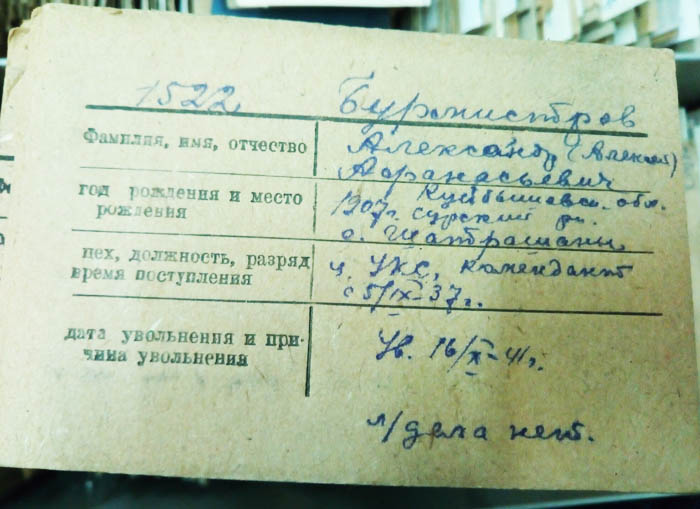 1522 Бурмистров
Фамилия, имя, отчество
Александр (Алексей)
Афанасьевич
год рождения и место
рождения
Куйбышевск. обл.
1907г. Сурский рн.
с. Шатрашаны
цех, должность, разряд
время поступления
ц. УКС, комендант
с 5/IX-37г.
дата увольнения и при-
чина увольнения
Ув. 16/X-41г.
л/дела нет.